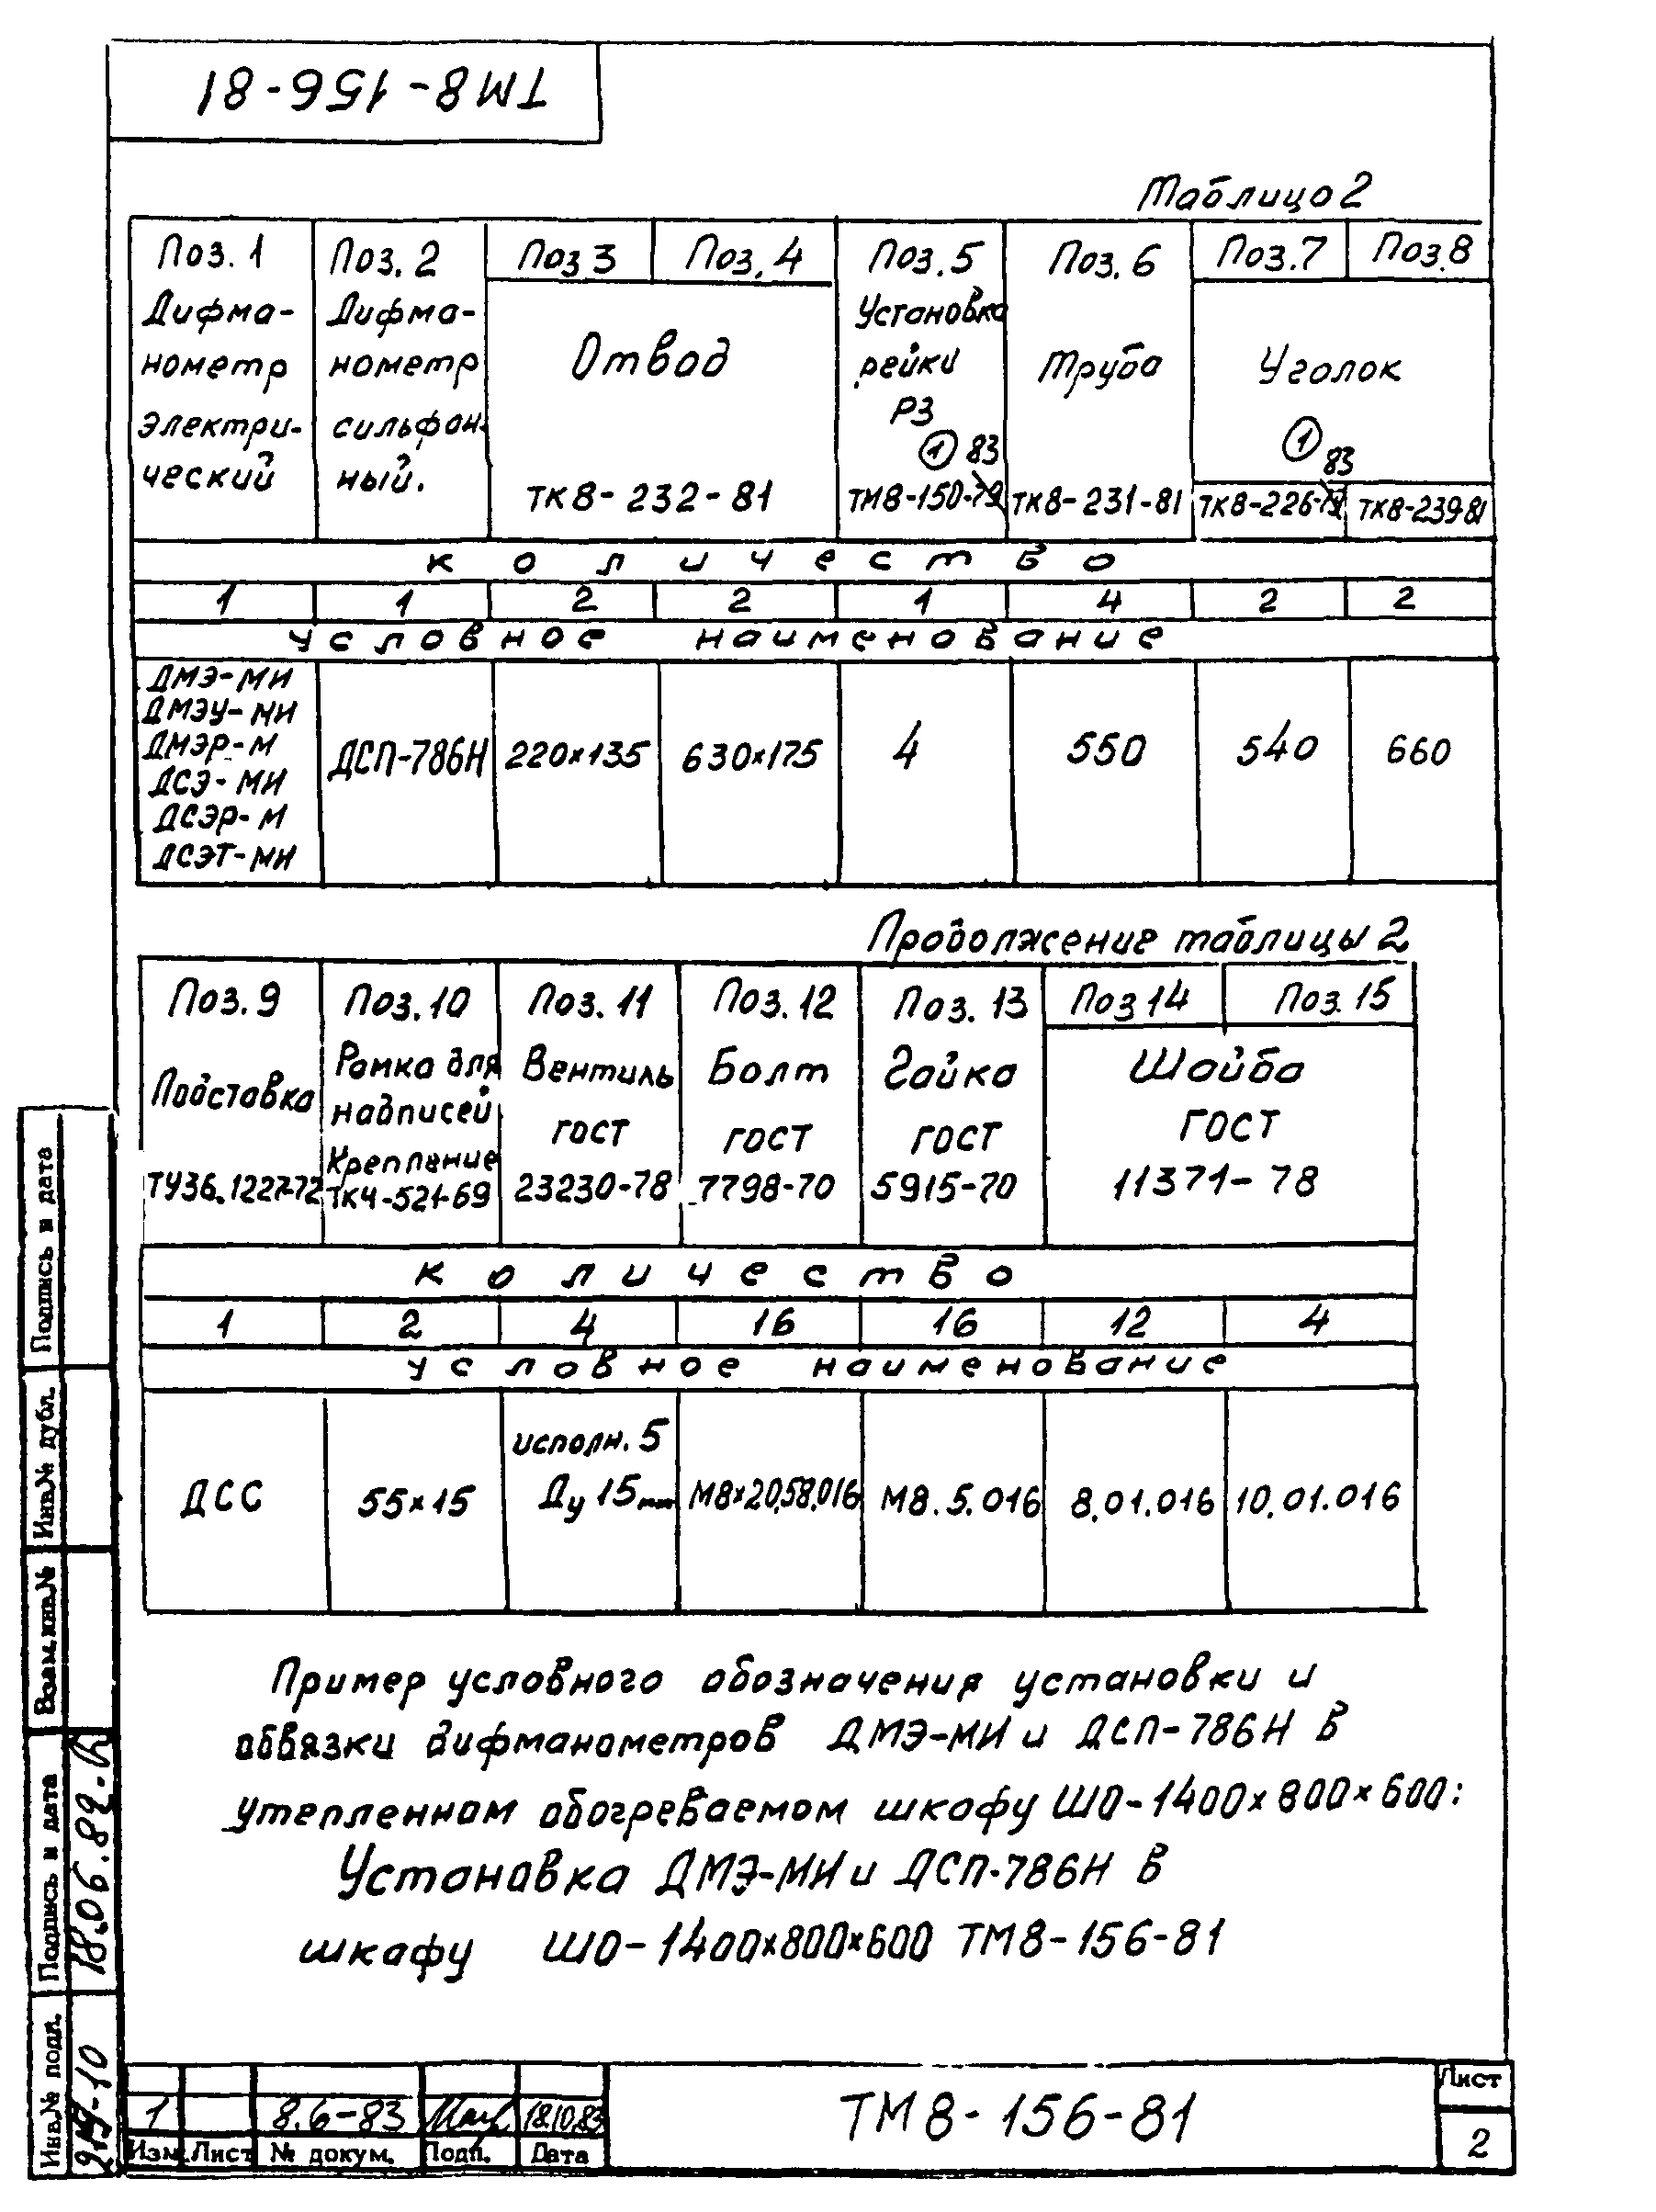 ТМ8-156-81
Таблица 2
Поз. 1 Поз. 2 Поз 3 Поз. 4 Поз. 5 Поз. 6 Поз. 7 Поз. 8
Дифма- Дифма- Установка
нометр нометр Отвод рейки Труба Уголок
электри- сильфон- Р3
ческий ный. ① 83 ① 83
ТК8-232-81 ТМ8-150-79 ТК8-231-81 ТК8-226- ТК8-239-81
количество
1 1 2 2 1 4 2 2
условное наименование
ДМЭ-МИ
ДМЭУ-МИ
ДМЭР-М
ДСП-786Н 220×135 630×175 4 550 540 660
ДСЭ-МИ
ДСЭР-М
ДСЭТ-МИ
Продолжение таблицы 2
Поз. 9 Поз. 10 Поз. 11 Поз. 12 Поз. 13 Поз 14 Поз. 15
Подставка Рамка для Вентиль Болт Гайка Шайба
надписей ГОСТ ГОСТ ГОСТ ГОСТ
Крепление
ТУ36.1227-72 ТК4-521-69 23230-78 7798-70 5915-70 11371-78
количество
1 2 4 16 16 12 4
условное наименование
исполн. 5
ДСС 55×15 Ду 15мм М8×20.58.016 М8.5.016 8.01.016 10.01.016
Пример условного обозначения установки и
обвязки дифманометров ДМЭ-МИ и ДСП-786Н в
утепленном обогреваемом шкафу ШО-1400×800×600:
Установка ДМЭ-МИ и ДСП-786Н в
шкафу ШО-1400×800×600 ТМ8-156-81
Подпись и дата
Инв.№ дубл.
Взам.инв.№
Подпись и дата
18.06.82
Инв.№ подл.
1 8.6-83 18.10.83
Изм. Лист № докум. Подп. Дата
ТМ8-156-81
Лист
2